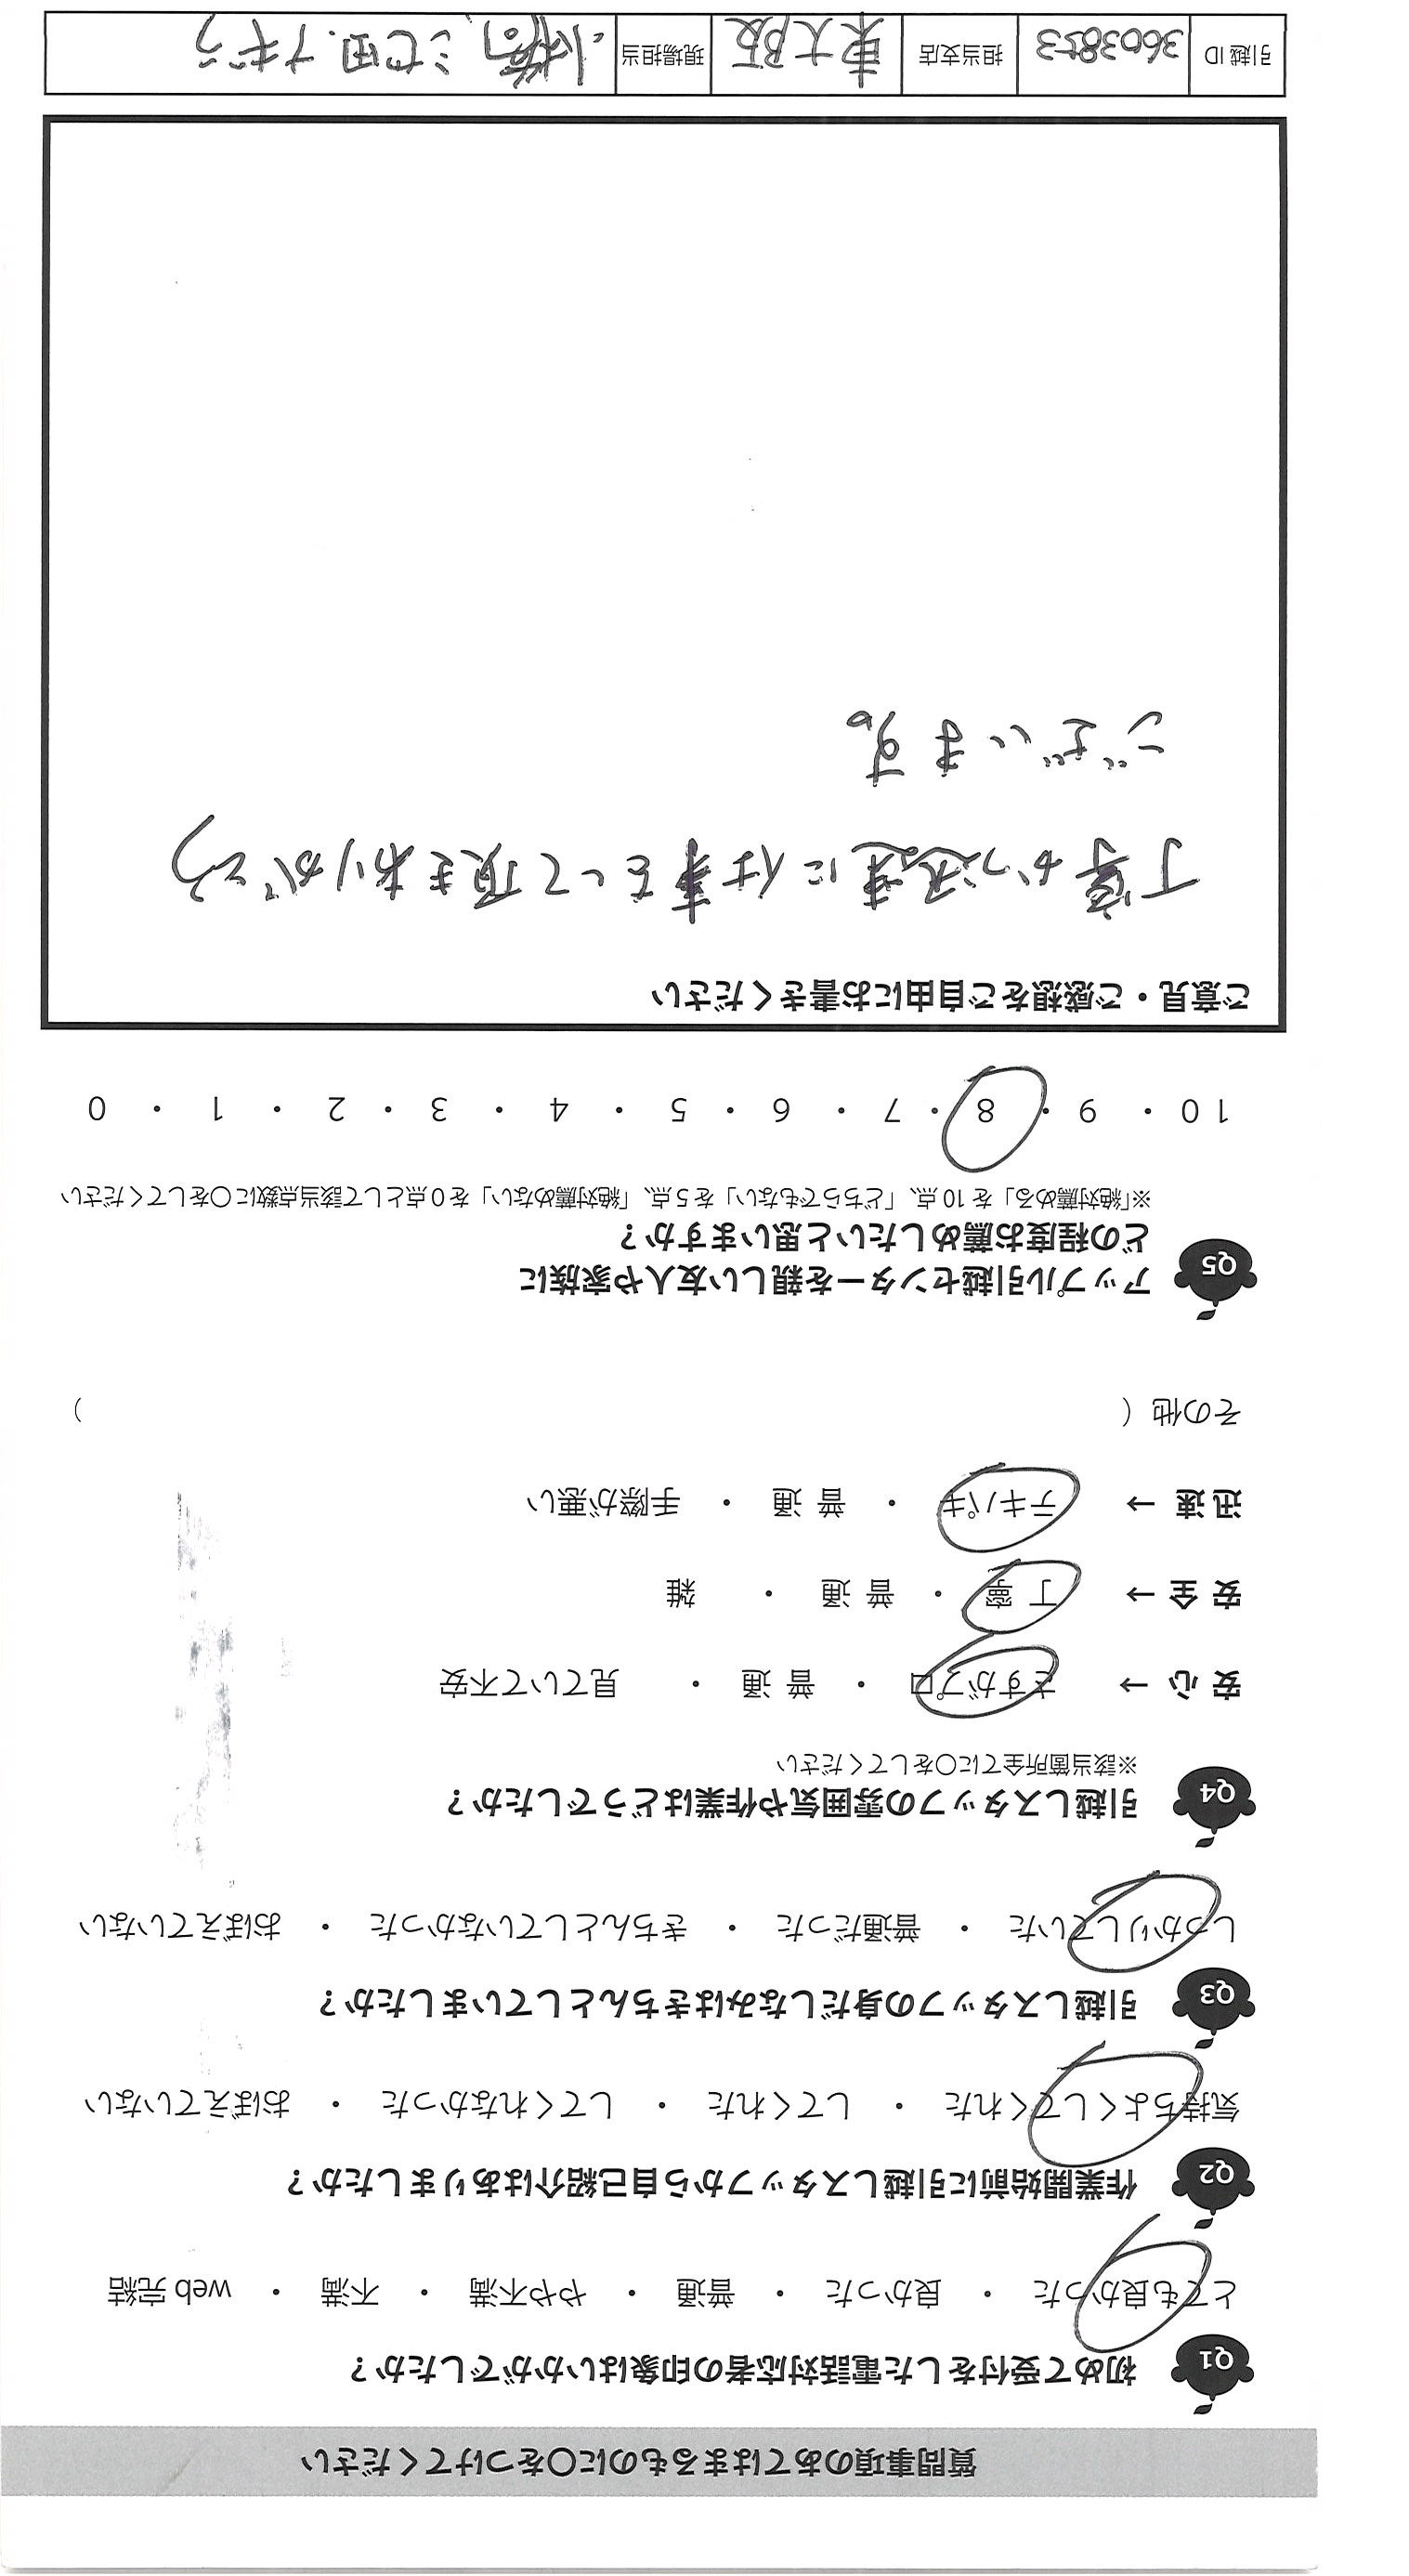 質問事項のあてはまるものに○をつけてください
Q1 初めて受付をした電話対応者の印象はいかがでしたか？
とても良かった ・ 良かった ・ 普通 ・ やや不満 ・ 不満 ・ web完結
Q2 作業開始前に引越しスタッフから自己紹介はありましたか？
気持ちよくしてくれた ・ してくれた ・ してくれなかった ・ おぼえていない
Q3 引越しスタッフの身だしなみはきちんとしていましたか？
しっかりしていた ・ 普通だった ・ きちんとしていなかった ・ おぼえていない
Q4 引越しスタッフの雰囲気や作業はどうでしたか？
※該当箇所全てに○をしてください
安心 → さすがプロ ・ 普通 ・ 見ていて不安
安全 → 丁寧 ・ 普通 ・ 雑
迅速 → テキパキ ・ 普通 ・ 手際が悪い
その他（ ）
Q5 アップル引越センターを親しい友人や家族に
どの程度お薦めしたいと思いますか？
※「絶対薦める」を10点、「どちらでもない」を5点、「絶対薦めない」を0点として該当点数に○をしてください
10 ・ 9 ・ 8 ・ 7 ・ 6 ・ 5 ・ 4 ・ 3 ・ 2 ・ 1 ・ 0
ご意見・ご感想をご自由にお書きください
丁寧かつ迅速に仕事をして頂きありがとう
ございます。
引越ID 3603853 担当支店 東大阪 現場担当